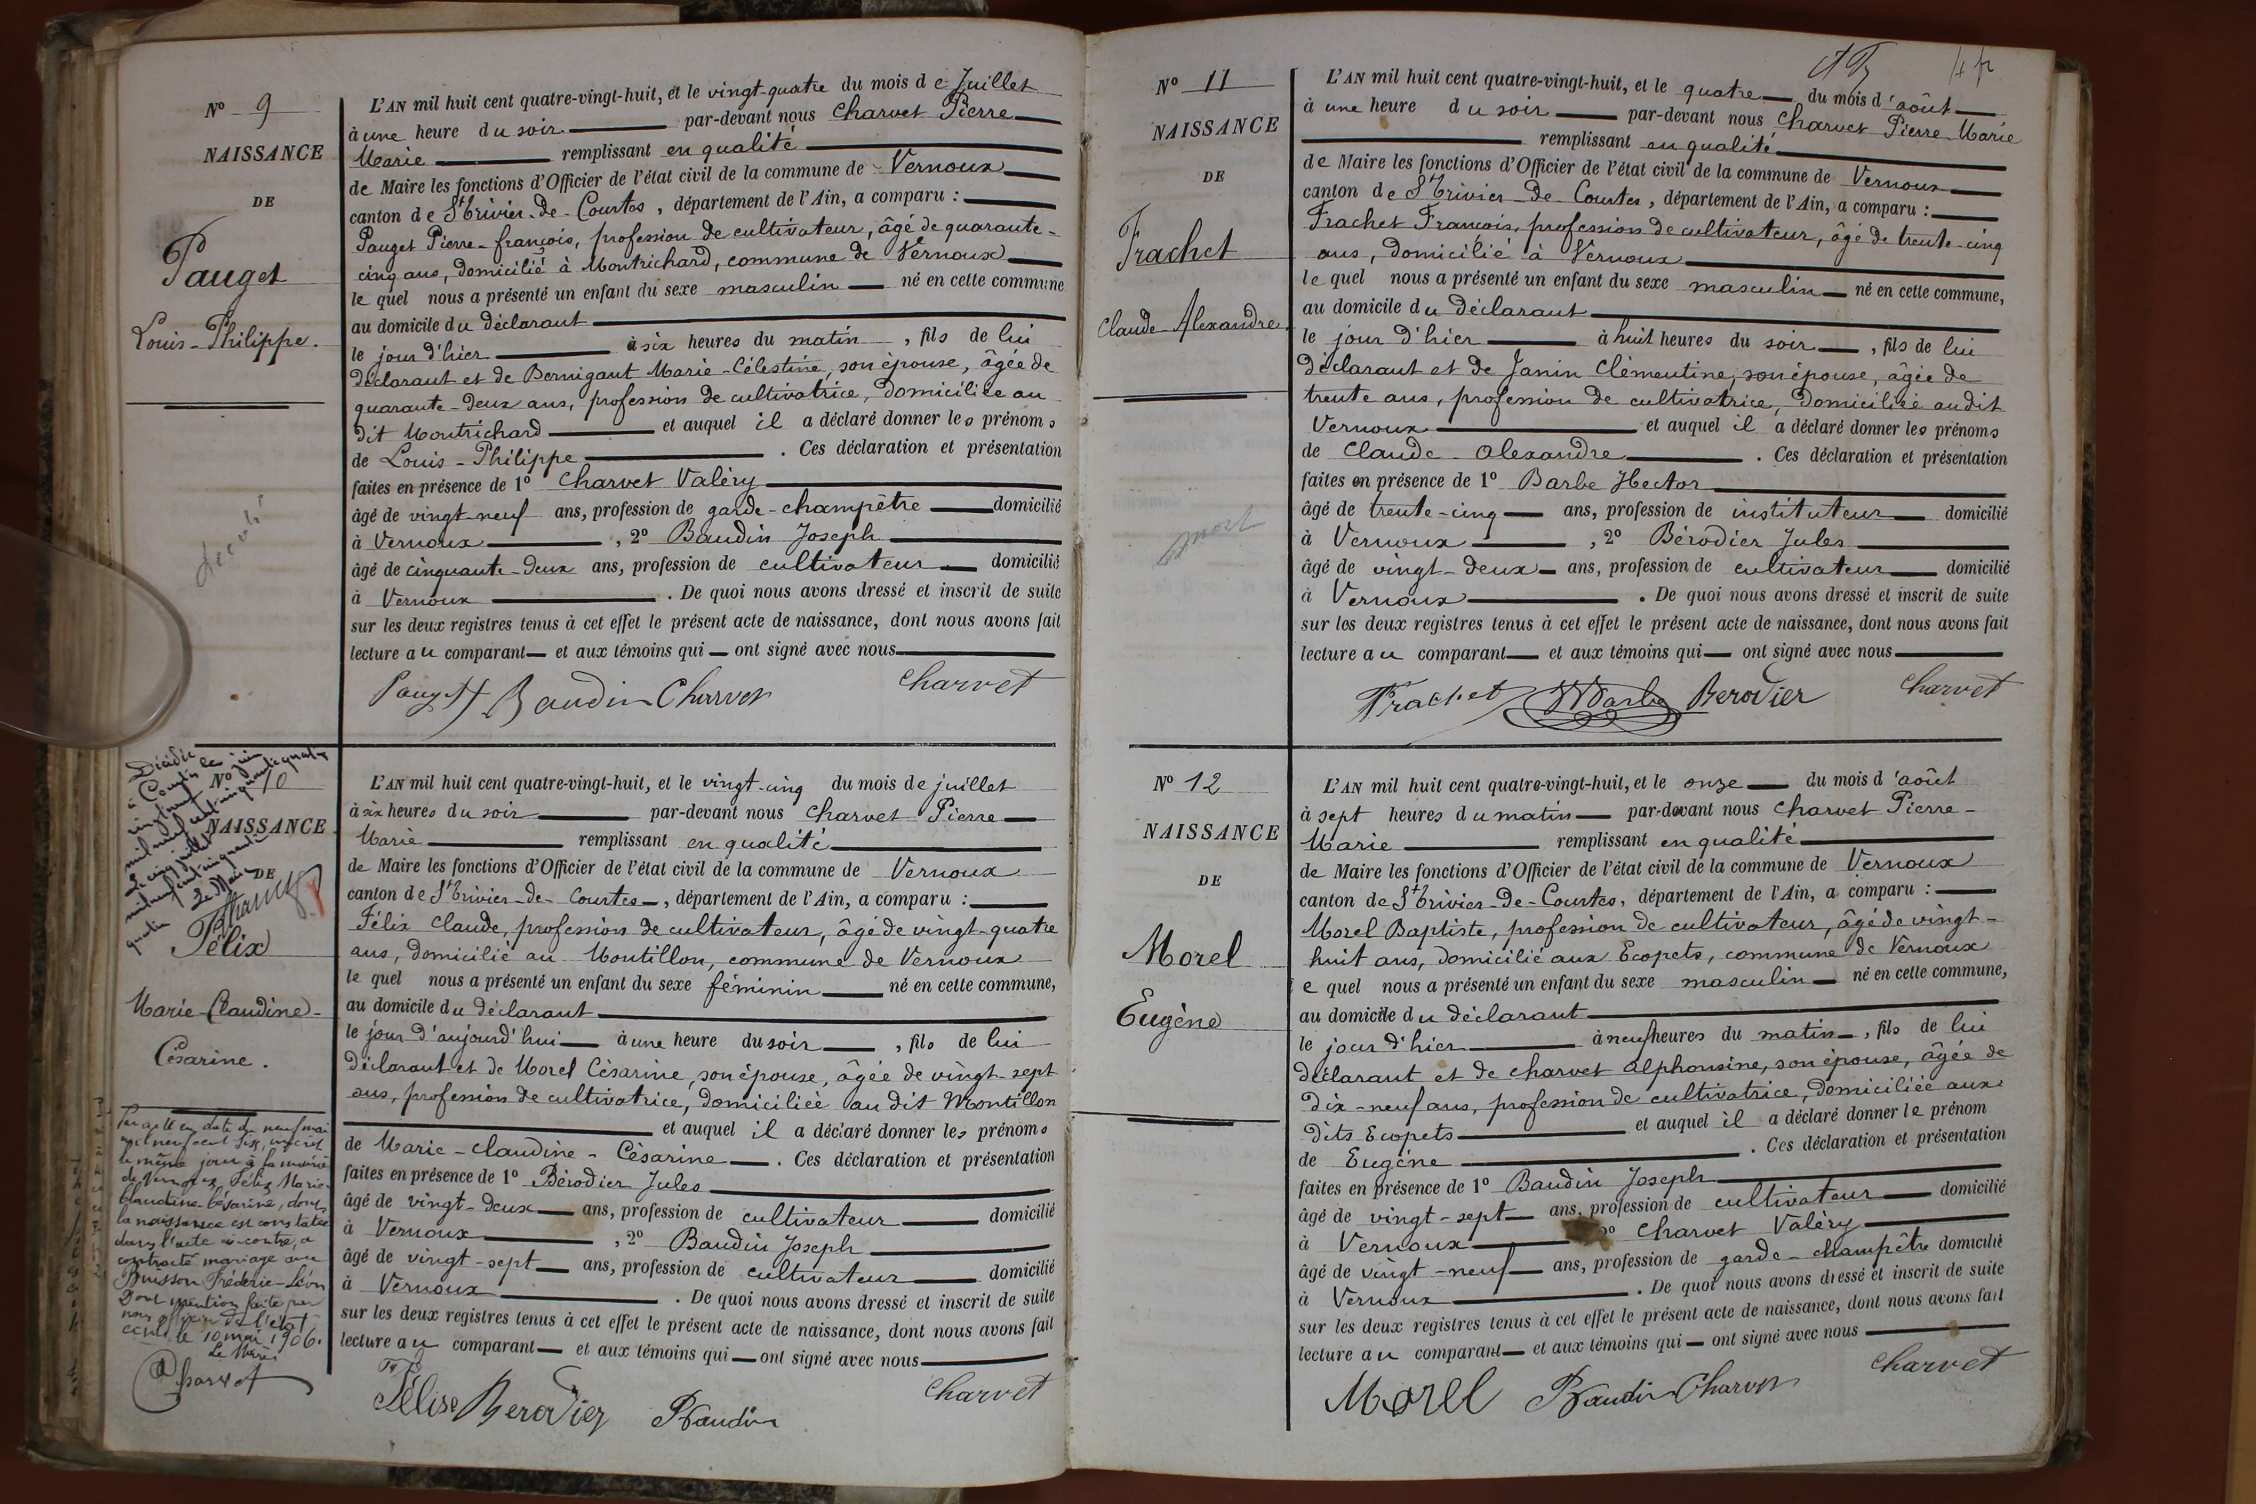 N° 9
NAISSANCE
DE
Pauget
Louis-Philippe.
décédé
L'AN mil huit cent quatre-vingt-huit, et le vingt-quatre du mois de Juillet
à une heure du soir par-devant nous Charvet Pierre
Marie remplissant en qualité
de Maire les fonctions d'Officier de l'état civil de la commune de Vernoux
canton de St Trivier-de-Courtes, département de l'Ain, a comparu :
Pauget Pierre-françois, profession de cultivateur, âgé de quarante-
cinq ans, domicilié à Montrichard, commune de Vernoux
le quel nous a présenté un enfant du sexe masculin né en cette commune
au domicile du déclarant
le jour d'hier à six heures du matin, fils de lui
déclarant et de Bernigaut Marie-Célestine, son épouse, âgée de
quarante-deux ans, profession de cultivatrice, domiciliée au
dit Montrichard et auquel il a déclaré donner les prénoms
de Louis-Philippe. Ces déclaration et présentation
faites en présence de 1° Charvet Valéry
âgé de vingt-neuf ans, profession de garde-champêtre domicilié
à Vernoux, 2° Baudin Joseph
âgé de cinquante-deux ans, profession de cultivateur domicilié
à Vernoux. De quoi nous avons dressé et inscrit de suite
sur les deux registres tenus à cet effet le présent acte de naissance, dont nous avons fait
lecture au comparant et aux témoins qui ont signé avec nous
Pauget Baudin Charvet Charvet
Décédée
à Courtes le
vingt neuf juin
mil neuf cent cinquante quatre
Le cinq juillet
mil neuf cent cinquante
quatre Le Maire
N° 10
NAISSANCE
DE
Félix
Marie-Claudine-
Césarine.
Par acte en date du neuf mai
mil neuf cent six, inscrit
le même jour à la mairie
de Vernoux, Félix Marie-
Claudine-Césarine, dont
la naissance est constatée
dans l'acte ci-contre, a
contracté mariage avec
Buisson Fréderic-Léon
Dont mention faite par
nous officier de l'état
civil, le 10 mai 1906.
Le Maire
Charvet
L'AN mil huit cent quatre-vingt-huit, et le vingt-cinq du mois de juillet
à six heures du soir par-devant nous Charvet Pierre
Marie remplissant en qualité
de Maire les fonctions d'Officier de l'état civil de la commune de Vernoux
canton de St Trivier-de-Courtes, département de l'Ain, a comparu :
Félix Claude, profession de cultivateur, âgé de vingt-quatre
ans, domicilié au Montillon, commune de Vernoux
le quel nous a présenté un enfant du sexe féminin né en cette commune,
au domicile du déclarant
le jour d'aujourd'hui à une heure du soir, fils de lui
déclarant et de Morel Césarine, son épouse, âgée de vingt-sept
ans, profession de cultivatrice, domiciliée au dit Montillon
et auquel il a déclaré donner les prénoms
de Marie-Claudine-Césarine. Ces déclaration et présentation
faites en présence de 1° Bérodier Jules
âgé de vingt-deux ans, profession de cultivateur domicilié
à Vernoux, 2° Baudin Joseph
âgé de vingt-sept ans, profession de cultivateur domicilié
à Vernoux. De quoi nous avons dressé et inscrit de suite
sur les deux registres tenus à cet effet le présent acte de naissance, dont nous avons fait
lecture au comparant et aux témoins qui ont signé avec nous
Félise Berodier Baudin Charvet
N° 11
NAISSANCE
DE
Frachet
Claude-Alexandre
mort
L'AN mil huit cent quatre-vingt-huit, et le quatre du mois d'août
à une heure du soir par-devant nous Charvet Pierre-Marie
remplissant en qualité
de Maire les fonctions d'Officier de l'état civil de la commune de Vernoux
canton de St Trivier-de-Courtes, département de l'Ain, a comparu :
Frachet François, profession de cultivateur, âgé de trente-cinq
ans, domicilié à Vernoux
le quel nous a présenté un enfant du sexe masculin né en cette commune,
au domicile du déclarant
le jour d'hier à huit heures du soir, fils de lui
déclarant et de Janin Clémentine, son épouse, âgée de
trente ans, profession de cultivatrice, domiciliée au dit
Vernoux et auquel il a déclaré donner les prénoms
de Claude-Alexandre. Ces déclaration et présentation
faites en présence de 1° Barbe Hector
âgé de trente-cinq ans, profession de instituteur domicilié
à Vernoux, 2° Bérodier Jules
âgé de vingt-deux ans, profession de cultivateur domicilié
à Vernoux. De quoi nous avons dressé et inscrit de suite
sur les deux registres tenus à cet effet le présent acte de naissance, dont nous avons fait
lecture au comparant et aux témoins qui ont signé avec nous
Frachet HBarbe Berodier Charvet
N° 12
NAISSANCE
DE
Morel
Eugène
L'AN mil huit cent quatre-vingt-huit, et le onze du mois d'août
à sept heures du matin par-devant nous Charvet Pierre-
Marie remplissant en qualité
de Maire les fonctions d'Officier de l'état civil de la commune de Vernoux
canton de St Trivier-de-Courtes, département de l'Ain, a comparu :
Morel Baptiste, profession de cultivateur, âgé de vingt-
huit ans, domicilié aux Ecopets, commune de Vernoux
le quel nous a présenté un enfant du sexe masculin né en cette commune,
au domicile du déclarant
le jour d'hier à neuf heures du matin, fils de lui
déclarant et de Charvet Alphonsine, son épouse, âgée de
dix-neuf ans, profession de cultivatrice, domiciliée aux
dits Ecopets et auquel il a déclaré donner le prénom
de Eugène. Ces déclaration et présentation
faites en présence de 1° Baudin Joseph
âgé de vingt-sept ans, profession de cultivateur domicilié
à Vernoux 2° Charvet Valéry
âgé de vingt-neuf ans, profession de garde-champêtre domicilié
à Vernoux. De quoi nous avons dressé et inscrit de suite
sur les deux registres tenus à cet effet le présent acte de naissance, dont nous avons fait
lecture au comparant et aux témoins qui ont signé avec nous
Morel Baudin Charvet Charvet